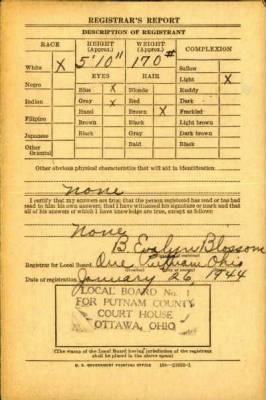 REGISTRAR'S REPORT
DESCRIPTION OF REGISTRANT
RACE HEIGHT (Approx.) WEIGHT (Approx.) COMPLEXION
5'10" 170#
White X Sallow
EYES HAIR Light X
Negro Blue X Blonde Ruddy
Indian Gray X Red Dark
Hazel Brown X Freckled
Filipino Brown Black Light brown
Japanese Black Gray Dark brown
Other Oriental Bald Black
Other obvious physical characteristics that will aid in identification
None
I certify that my answers are true; that the person registered has read or has had
read to him his own answers; that I have witnessed his signature or mark and that
all of his answers of which I have knowledge are true, except as follows:
None
B. Evalyn Blossom
Registrar for Local Board One Putnam Ohio
Date of registration January 26, 1944
LOCAL BOARD No. 1
FOR PUTNAM COUNTY
COURT HOUSE
OTTAWA, OHIO
(The stamp of the Local Board having jurisdiction of the registrant
shall be placed in the above space)
U. S. GOVERNMENT PRINTING OFFICE